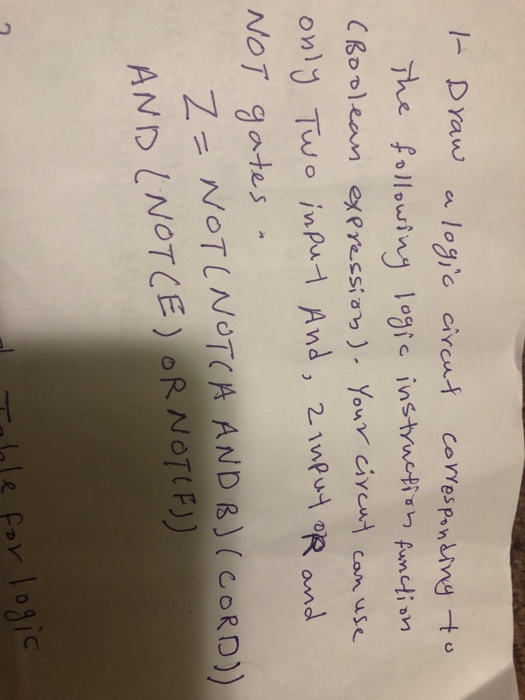 1- Draw a logic circut corresponding to
The following logic instruction function
(Boolean expression). Your circut can use
only Two input And, 2 input OR and
NOT gates.
Z = NOT(NOT(A AND B)(CORD))
AND(NOT(E) OR NOT(F))
Table for logic